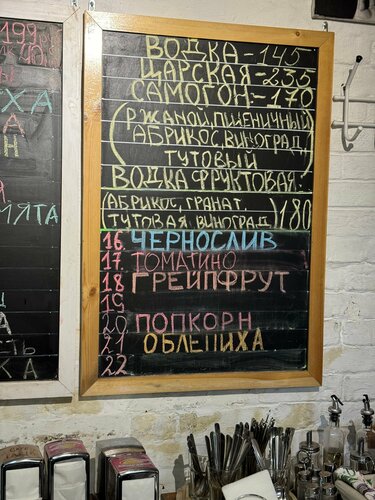 199р
40р
ХА
А
Н
МЯТА
А
ТЬ
КА
ВОДКА-145
ЦАРСКАЯ-235
САМОГОН:-170
(РЖАНОЙ, ПШЕНИЧНЫЙ
АБРИКОС, ВИНОГРАД,
ТУТОВЫЙ)
ВОДКА ФРУКТОВАЯ:
(АБРИКОС, ГРАНАТ,
ТУТОВАЯ, ВИНОГРАД) 180
16. ЧЕРНОСЛИВ
17. ТОМАТИНО
18 ГРЕЙПФРУТ
19
20 ПОПКОРН
21 ОБЛЕПИХА
22